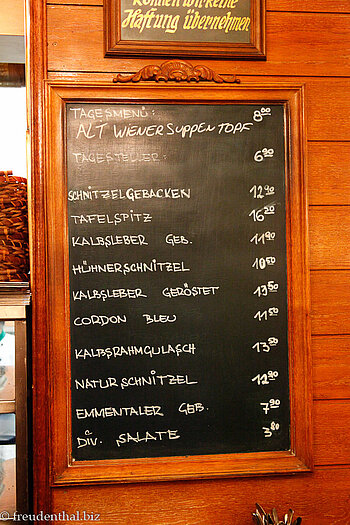 können wir keine
Haftung übernehmen
TAGESMENÜ: 8⁰⁰
ALT WIENER SUPPENTOPF
TAGESTELLER: 6⁹⁰
SCHNITZEL GEBACKEN 12⁹⁰
TAFELSPITZ 16²⁰
KALBSLEBER GEB. 11⁹⁰
HÜHNERSCHNITZEL 10⁵⁰
KALBSLEBER GERÖSTET 13⁵⁰
CORDON BLEU 11⁵⁰
KALBSRAHMGULASCH 13⁹⁰
NATURSCHNITZEL 12⁹⁰
EMMENTALER GEB. 7⁹⁰
DIV. SALATE 3⁸⁰
© freudenthal.biz